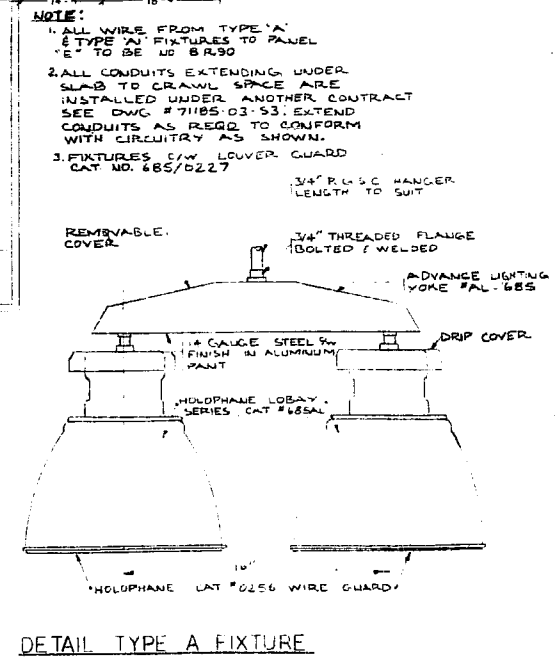 NOTE:
1. ALL WIRE FROM TYPE 'A'
& TYPE 'A1' FIXTURES TO PANEL
"E" TO BE NO 8 R90
2. ALL CONDUITS EXTENDING UNDER
SLAB TO CRAWL SPACE ARE
INSTALLED UNDER ANOTHER CONTRACT
SEE DWG #71185-03-53. EXTEND
CONDUITS AS REQD TO CONFORM
WITH CIRCUITRY AS SHOWN.
3. FIXTURES C/W LOUVER GUARD
CAT NO. 685/0227
3/4" R G S C HANGER
LENGTH TO SUIT
REMOVABLE
COVER
3/4" THREADED FLANGE
BOLTED & WELDED
ADVANCE LIGHTING
YOKE #AL-685
14 GAUGE STEEL C/W
FINISH IN ALUMINUM
PAINT
DRIP COVER
HOLOPHANE LOBAY
SERIES CAT #685AL
16"
HOLOPHANE CAT #0256 WIRE GUARD
DETAIL TYPE A FIXTURE